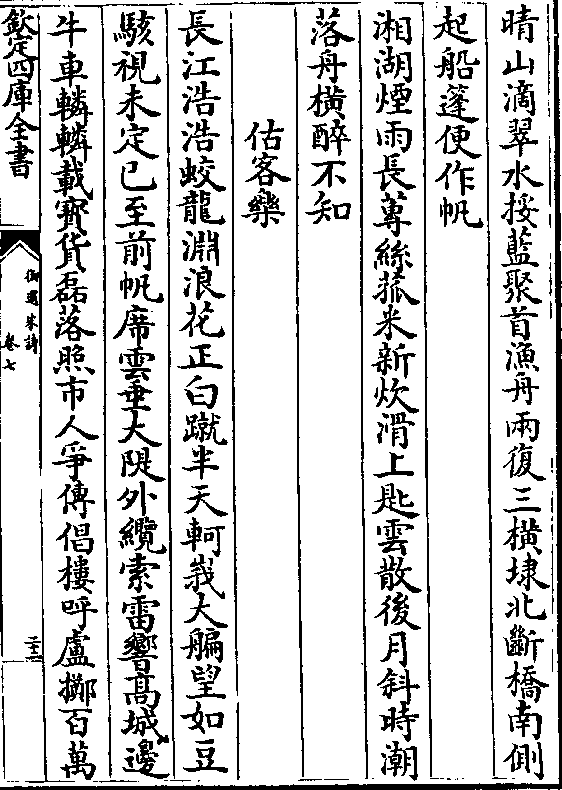 晴山滴翠水挼藍聚首漁舟兩復三橫埭北斷橋南側
起船蓬便作帆
湘湖煙雨長蓴絲菰米新炊滑上匙雲散後月斜時潮
落舟橫醉不知
估客樂
長江浩浩蛟龍淵浪花正白蹴半天軻峩大艑望如豆
駭視未定已至前帆席雲垂大隄外纜索雷響髙城邊
牛車轔轔載寳貨磊落照市人爭傳倡樓呼盧擲百萬
欽定四庫全書
御選宋詩
卷七
二十二